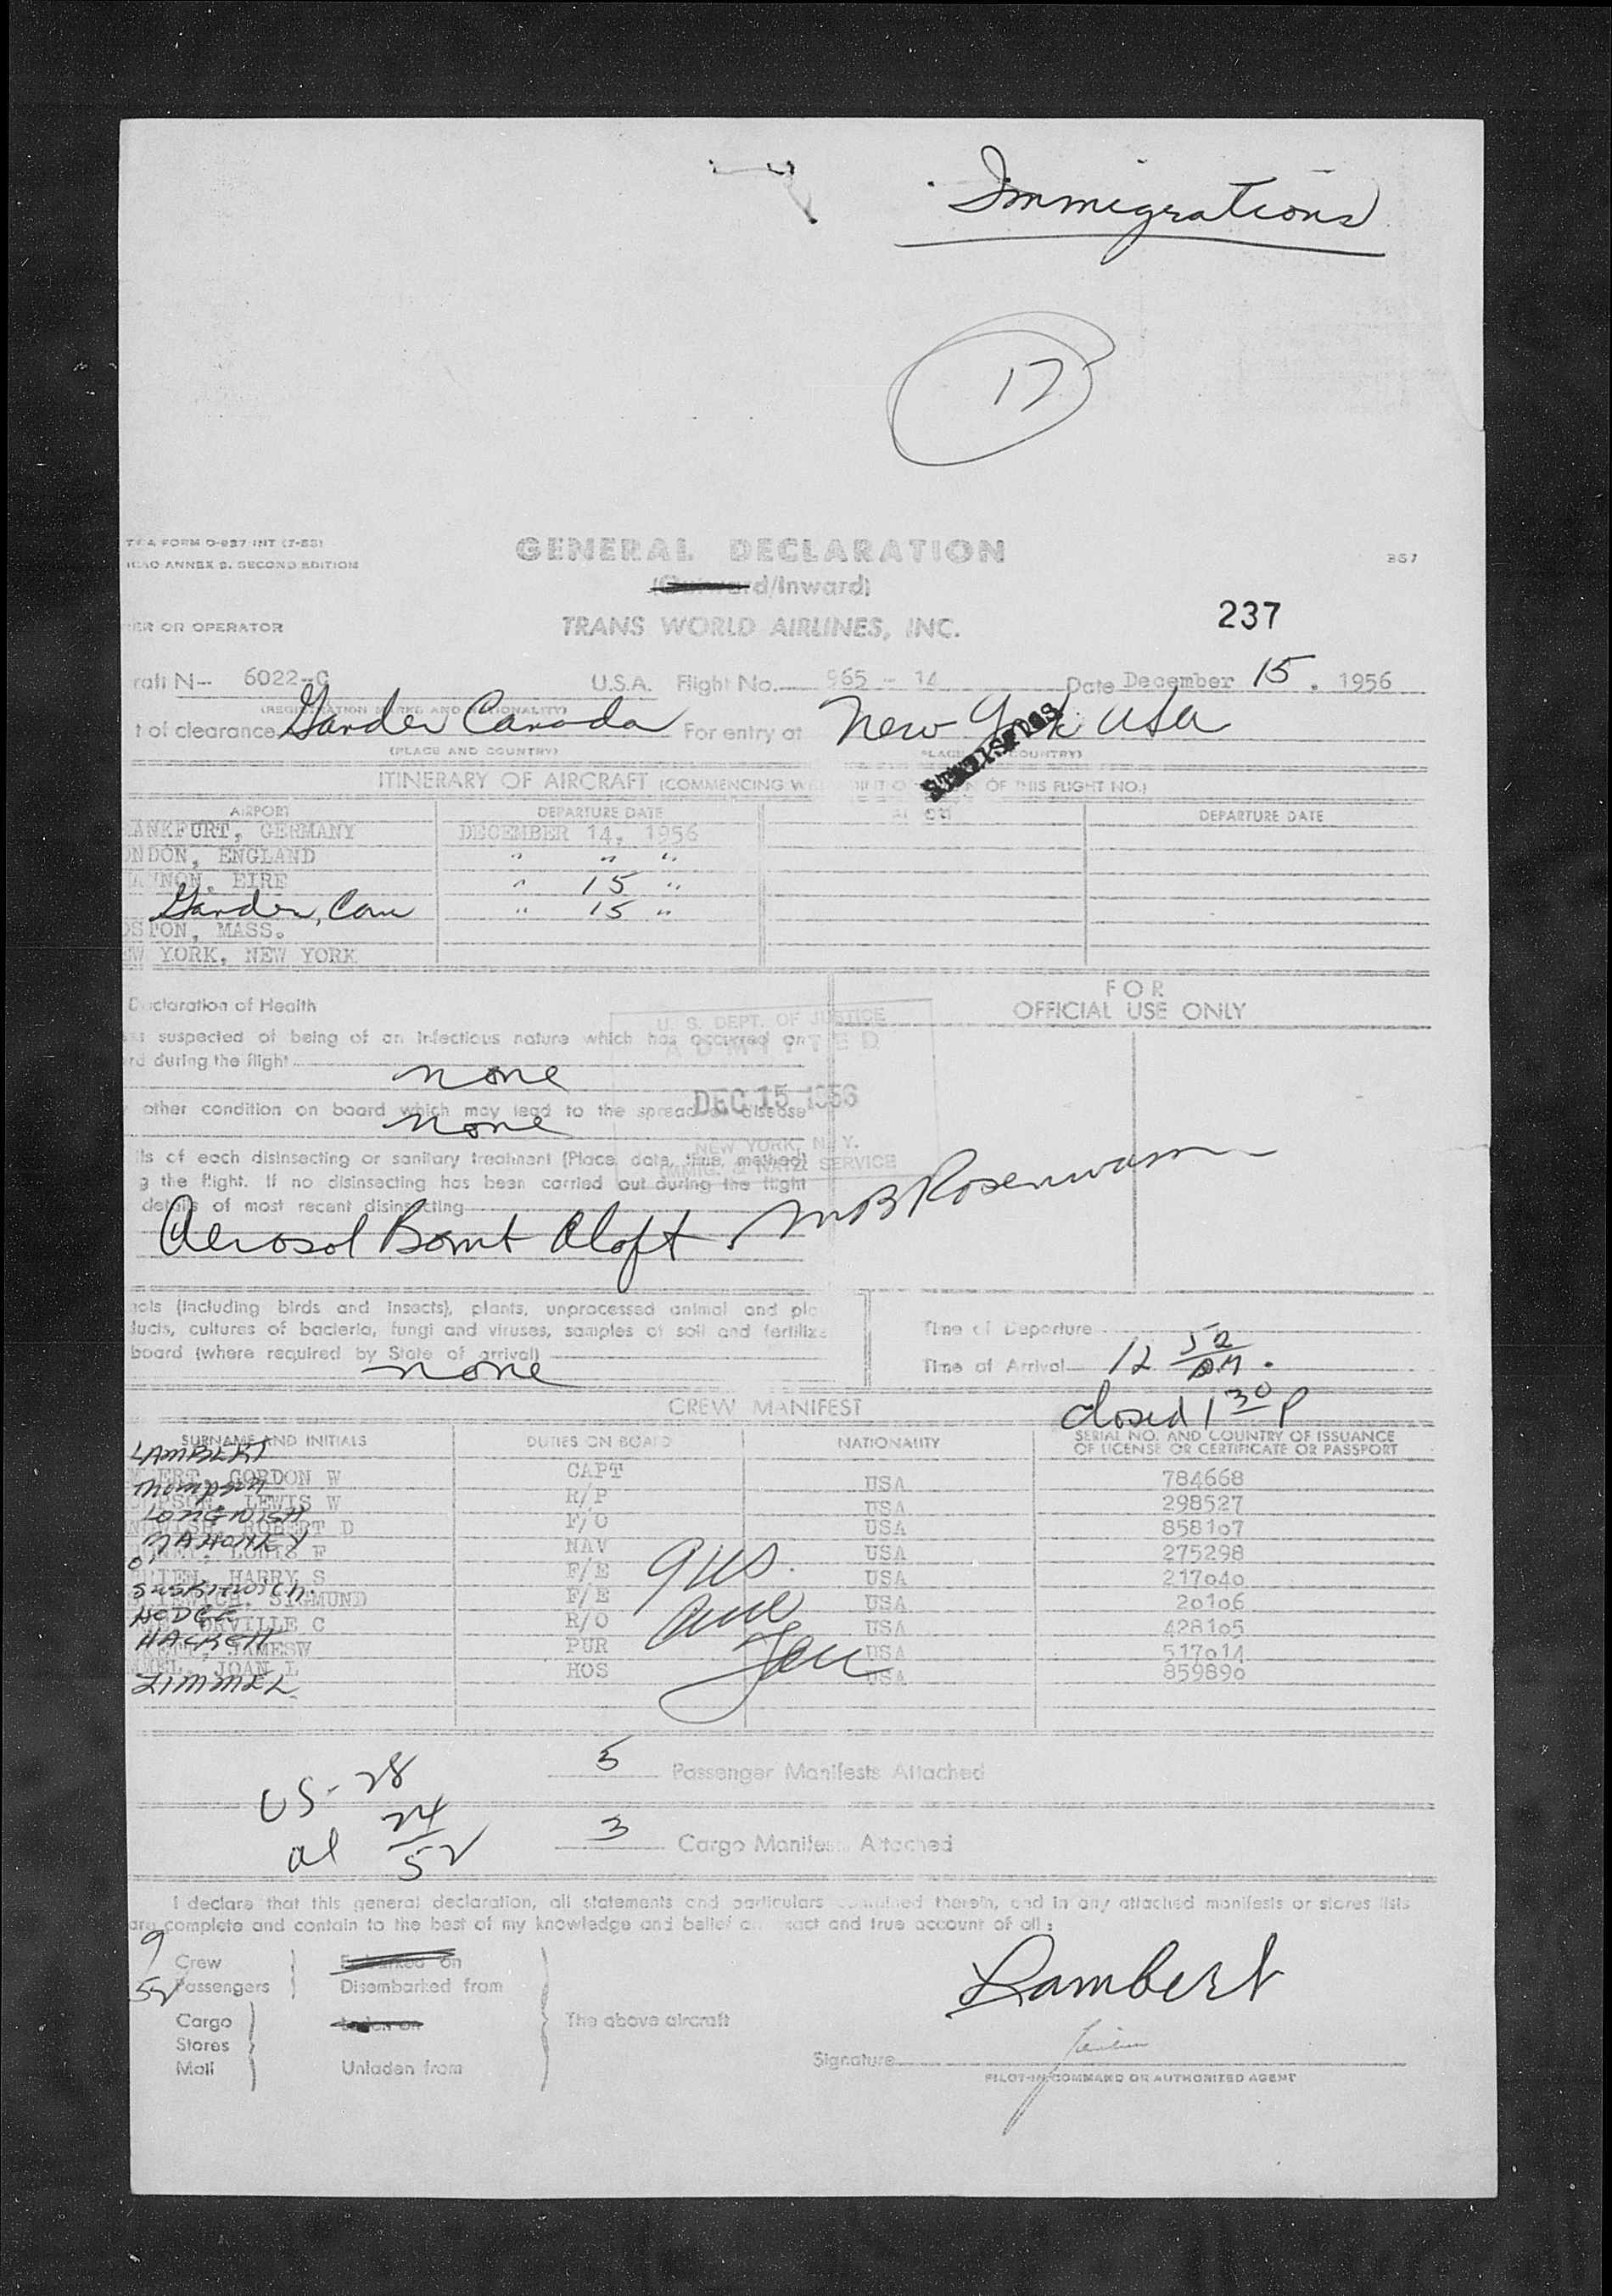 Immigrations
17
TWA FORM O-927 INT (7-55)
ICAO ANNEX 9, SECOND EDITION
GENERAL DECLARATION
357
d/Inward)
237
ER OR OPERATOR
TRANS WORLD AIRLINES, INC.
raft N- 6022-C U.S.A. Flight No. 965 - 14 Date December 15, 1956
(REGISTRATION MARKS AND NATIONALITY)
t of clearance Gander Canada For entry at New York USA
(PLACE AND COUNTRY)
ITINERARY OF AIRCRAFT (COMMENCING OF THIS FLIGHT NO.)
AIRPORT DEPARTURE DATE DEPARTURE DATE
ANKFURT, GERMANY DECEMBER 14, 1956
ONDON, ENGLAND " " "
NNON, EIRE " 15 "
Gander, Can " 15 "
OSTON, MASS.
EW YORK, NEW YORK
FOR
OFFICIAL USE ONLY
Declaration of Health
suspected of being of an infectious nature which has occurred on
rd during the flight
none
other condition on board which may lead to the spread of disease
none
U. S. DEPT. OF JUSTICE
ADMITTED
DEC 15 1956
NEW YORK, N. Y.
IMMIG. & NATZ. SERVICE
ils of each disinsecting or sanitary treatment (Place, date, time, method)
g the flight. If no disinsecting has been carried out during the flight
details of most recent disinsecting
Aerosol Bomb Aloft. MB Rosenwasm
als (including birds and insects), plants, unprocessed animal and pla
ducts, cultures of bacteria, fungi and viruses, samples of soil and fertilize
board (where required by State of arrival)
none
Time of Departure
Time of Arrival 12 52 PM.
closed 1 30 P
CREW MANIFEST
SURNAME AND INITIALS DUTIES ON BOARD NATIONALITY SERIAL NO. AND COUNTRY OF ISSUANCE
OF LICENSE OR CERTIFICATE OR PASSPORT
LAMBERT
ERT, GORDON W CAPT USA 784668
Thompson
MPSON, LEWIS W R/P USA 298527
LONGWISH
NGWISH, ROBERT D F/O USA 858107
MAHONEY
LOUIS F NAV USA 275298
O'
BRIEN, HARRY S F/E USA 217040
SUSKIEWICH.
KIEWICH, SIGMUND F/E USA 20106
HODGE
ORVILLE C R/O USA 428105
HACKETT
JAMESW PUR USA 517014
MEL, JOAN L HOS USA 859890
ZIMMEL
9 US.
5 Passenger Manifests Attached
US - 28
al 24
52
3 Cargo Manifests Attached
I declare that this general declaration, all statements and particulars contained therein, and in any attached manifests or stores lists
are complete and contain to the best of my knowledge and belief an exact and true account of all:
9 Crew Embarked on
52 Passengers Disembarked from
Cargo Laden on The above aircraft
Stores
Mail Unladen from
Lambert
Signature
PILOT-IN-COMMAND OR AUTHORIZED AGENT